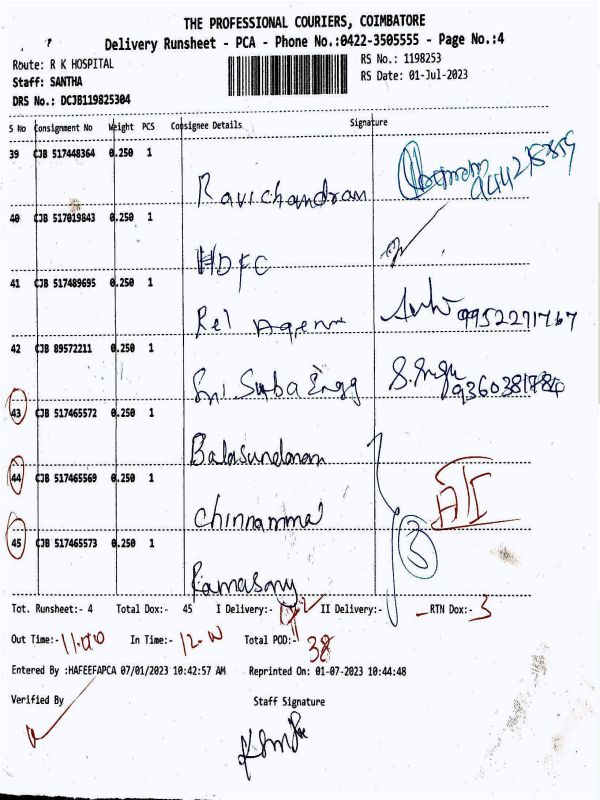 THE PROFESSIONAL COURIERS, COIMBATORE
Delivery Runsheet - PCA - Phone No.:0422-3505555 - Page No.:4
Route: R K HOSPITAL RS No.: 1198253
Staff: SANTHA RS Date: 01-Jul-2023
DRS No.: DCJB119825304
S No Consignment No Weight PCS Consignee Details Signature
39 CJB 517448364 0.250 1
Ravichandran
40 CJB 517019843 0.250 1
HDFC
41 CJB 517489695 0.250 1
Rel Agenr 9952271767
42 CJB 89572211 0.250 1
Sri Suba Engg 9360381784
43 CJB 517465572 0.250 1
Balasundaram
44 CJB 517465569 0.250 1
Chinnammal
3
45 CJB 517465573 0.250 1
Ramasamy
Tot. Runsheet:- 4 Total Dox:- 45 I Delivery:- II Delivery:- RTN Dox:- 3
Out Time:- 11.00 In Time:- Total POD:- 38
Entered By :HAFEEFAPCA 07/01/2023 10:42:57 AM Reprinted On: 01-07-2023 10:44:48
Verified By Staff Signature